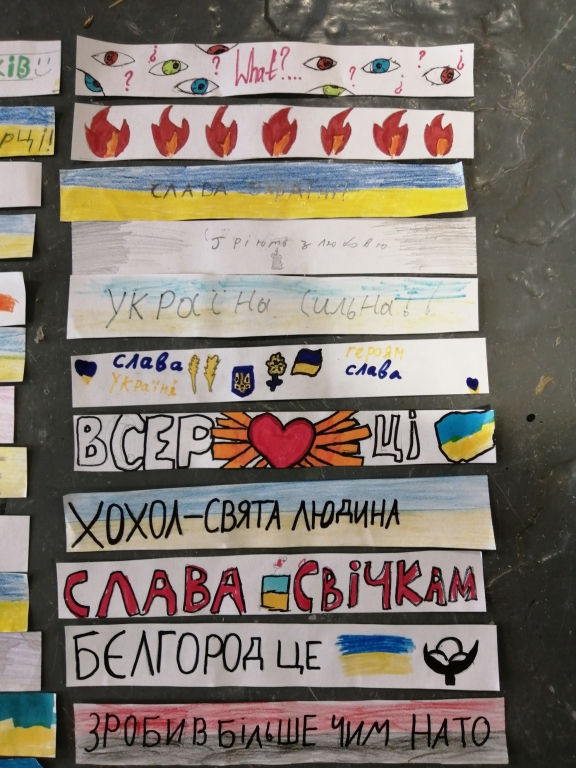 ків
рці!!
What?....
СЛАВА
гріють з любовю
УКРАЇНА СИЛЬНА!!
слава
Україні
героям
слава
ВСЕР ЦІ
ХОХОЛ-СВЯТА ЛЮДИНА
СЛАВА СВІЧКАМ
БЄЛГОРОД ЦЕ
ЗРОБИВ БІЛЬШЕ ЧИМ НАТО